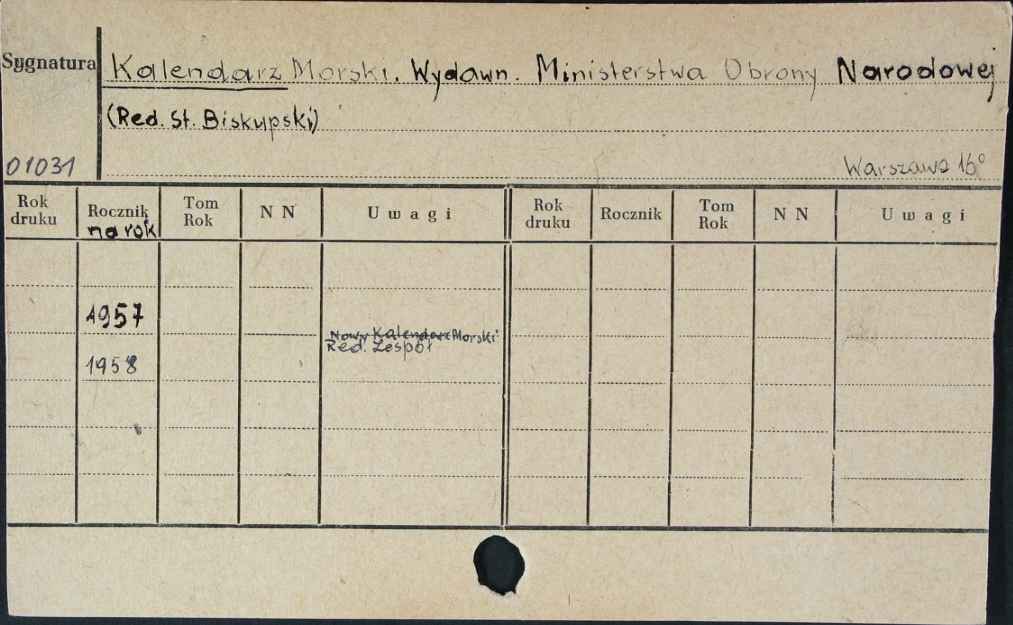 Sygnatura
Kalendarz Morski. Wydawn. Ministerstwa Obrony Narodowej
(Red. St. Biskupski)
01031
Warszawa 16°
Rok druku
Rocznik na rok
Tom Rok
N N
Uwagi
Rok druku
Rocznik
Tom Rok
N N
Uwagi
1957
Nowy Kalendarz Morski
Red. Zespół
1958